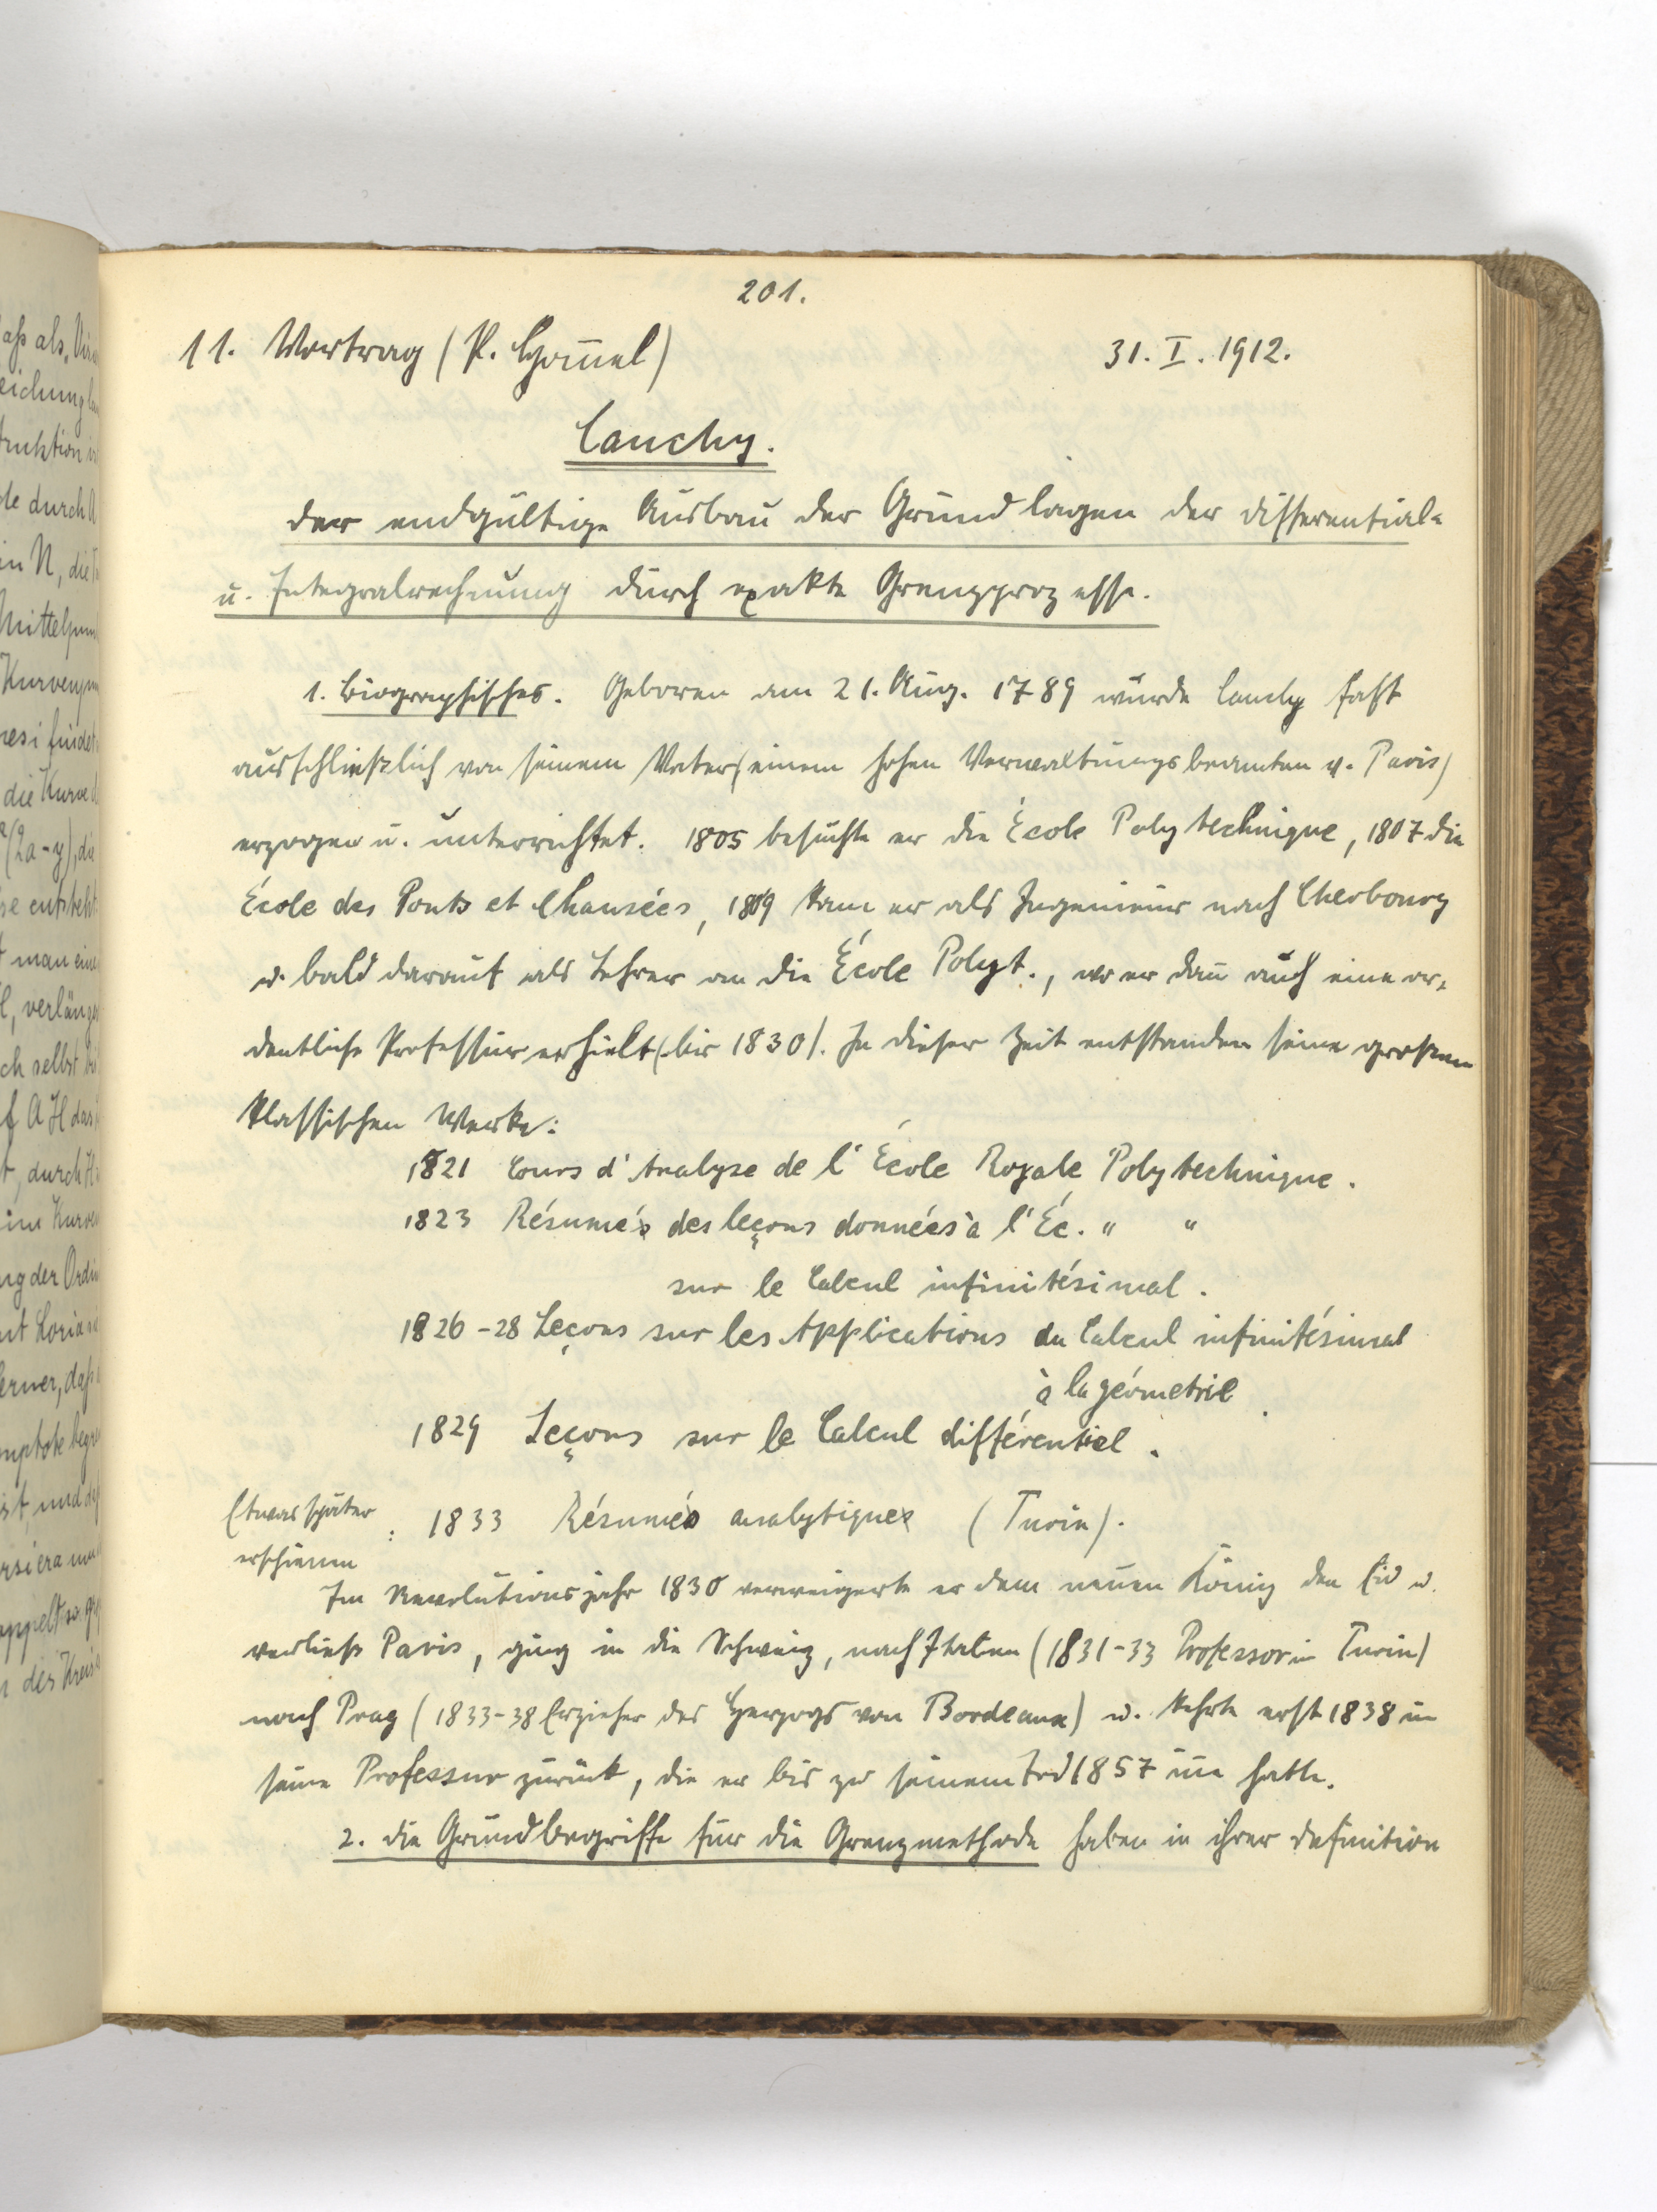 201.
11. Vortrag (P. Hom̄el) 31. I. 1912.
Cauchy.
Der endgültige Ausbau der Grundlagen der Differential-
u. Integralrechnung durch exakte Grenzprozesse.
1. Biographisches. Geboren am 21. Aug. 1789 wurde Cauchy fast
ausschließlich von seinem Vater (einem hohen Verwaltungsbeamten v. Paris)
erzogen u. unterrichtet. 1805 besuchte er die École Polytechnique, 1807 die
École des Ponts et Chausées, 1809 kam er als Ingenieur nach Cherbourg
u. bald darauf als Lehrer an die École Polyt., wo er dan̄ auch eine or-
dentliche Professur erhielt (bis 1830). In dieser Zeit entstanden seine grossen
klassischen Werke:
1821 Cours d'Analyse de l'École Royale Polytechnique.
1823 Résumés des leçons données à l'Éc. " "
sur le Calcul infinitésimal.
1826-28 Leçons sur les Applications du Calcul infinitésimal
à la géometrie.
1829 Leçons sur le Calcul différentiel.
Etwas später
erschienen : 1833 Résumés analytiques (Turin).
Im Revolutionsjahr 1830 verweigerte er dem neuen König den Eid u.
verließ Paris, ging in die Schweiz, nach Italien (1831-33 Professor in Turin)
nach Prag (1833-38 Erzieher des Herzogs von Bordeaux) u. kehrte erst 1838 in
seine Professur zurück, die er bis zu seinem Tod 1857 in̄e hatte.
2. Die Grundbegriffe für die Grenzmethode haben in ihrer Definition
aß als „
eichung
truktion
de durch A
in N, die
Mittelpun
Kurvenpun
resi findet
die Kurve
(2a-y), die
se entsteht
man eine
l, verläng
ch selbst
f A H das
t, durch H
im Kurve
ng der Ordin
nt Loria
erner, daß
mptote begr
ist, und
rsiera
oppelt so
des Kreis